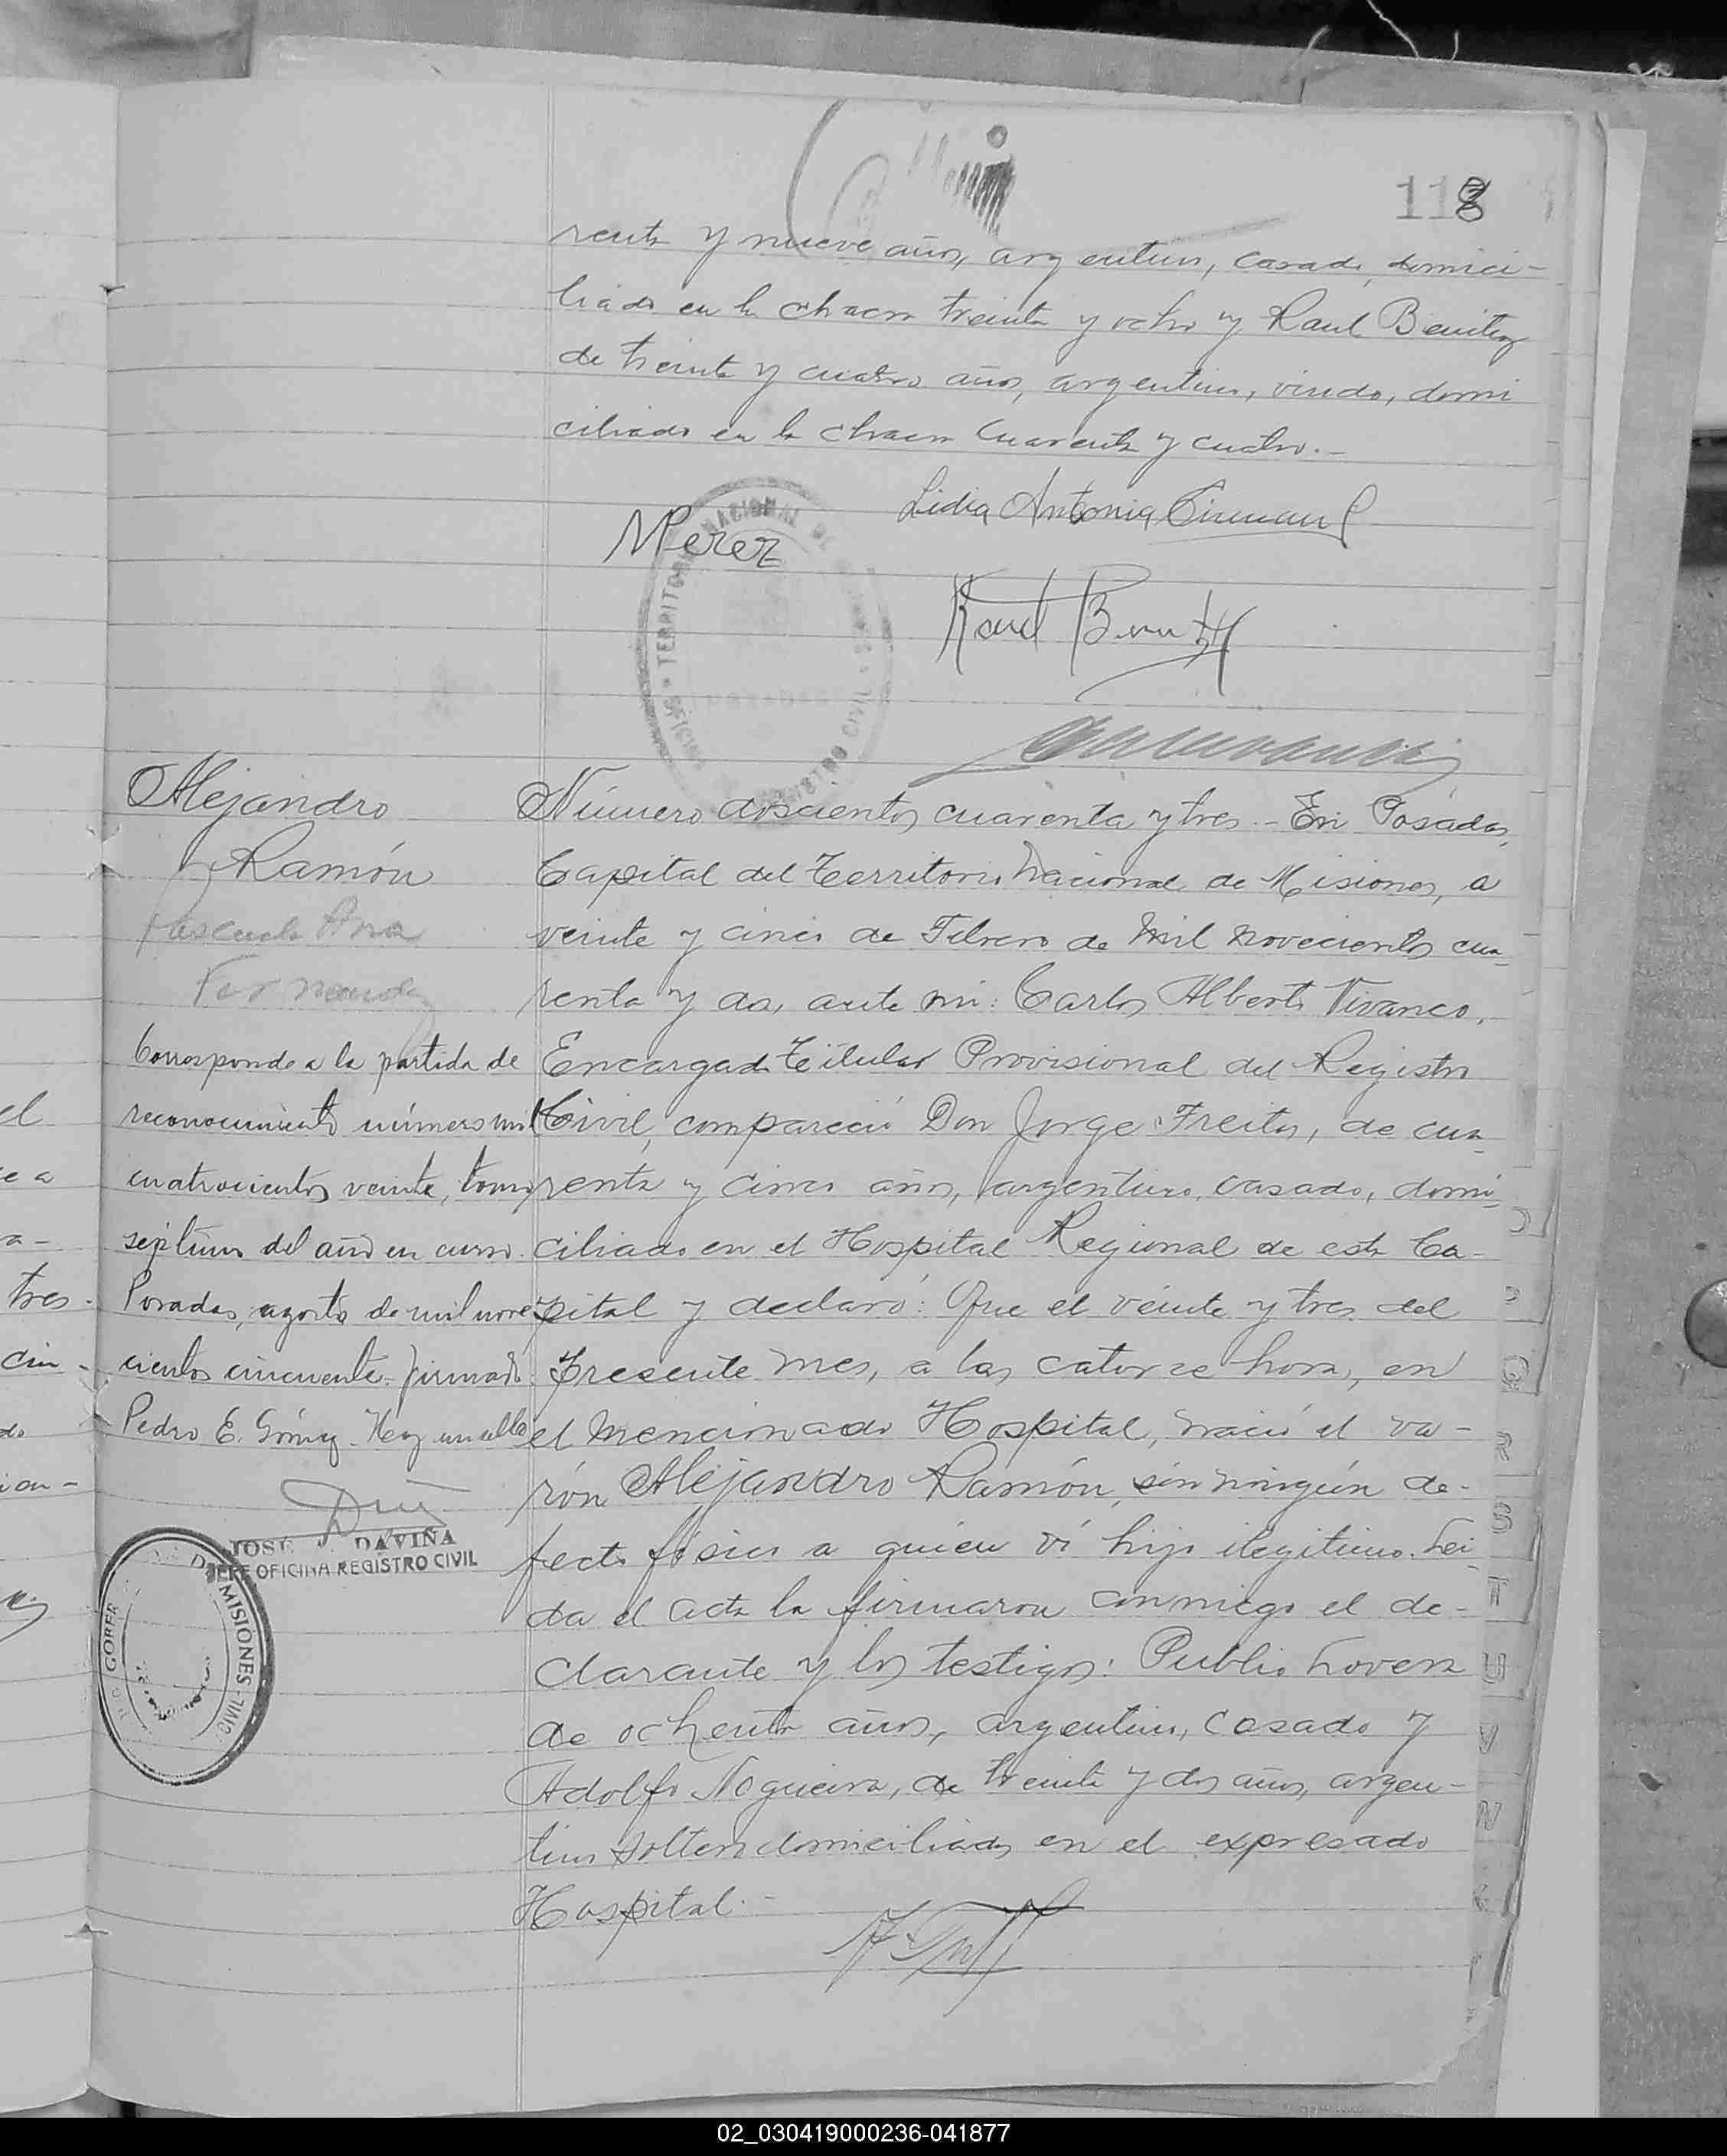 118
renta y nueve años, argentino, casado, domici-
liado en la chacra treinta y ocho y Raul Benitez
de treinta y cuatro años, argentino, viudo, domi
ciliado en la chacra cuarenta y cuatro.-
MPerez
Lidia Antonia
Raul Benitez
TERRITORIO NACIONAL DE
REGISTRO CIVIL
Alejandro
Ramón
Pascuala Ana
Fernandez
Corresponde a la partida de
reconocimiento número mil
cuatrocientos veinte, tomo
séptimo del año en curso.
Posadas, agosto de mil nove
cientos cincuenta. firmado:
Pedro E. Gómez. Hay un sello
JOSE J. DAVIÑA
JEFE OFICINA REGISTRO CIVIL
GOBER
MISIONES
CIVIL
Número doscientos cuarenta y tres.- En Posadas,
Capital del Territorio Nacional de Misiones, a
veinte y cinco de Febrero de mil novecientos cua-
renta y dos, ante mi: Carlos Alberto Vivanco,
Encargado Titular Provisional del Registro
Civil, compareció Don Jorge Freitas, de cua-
renta y cinco años, argentino, casado, domi-
ciliado en el Hospital Regional de esta Ca-
pital y declaró: Que el veinte y tres del
presente mes, a las catorce horas, en
el mencionado Hospital, nació el va-
rón Alejandro Ramón, sin ningún de-
fecto físico a quien ví hijo ilegitimo. Lei-
da el acta la firmaron conmigo el de-
clarante y los testigos: Publio Lovera
de ochenta años, argentino, casado y
Adolfo Nogueira, de treinta y dos años, argen-
tino soltero domiciliados en el expresado
Hospital.-
el
tres.
cin-
do
02_030419000236-041877